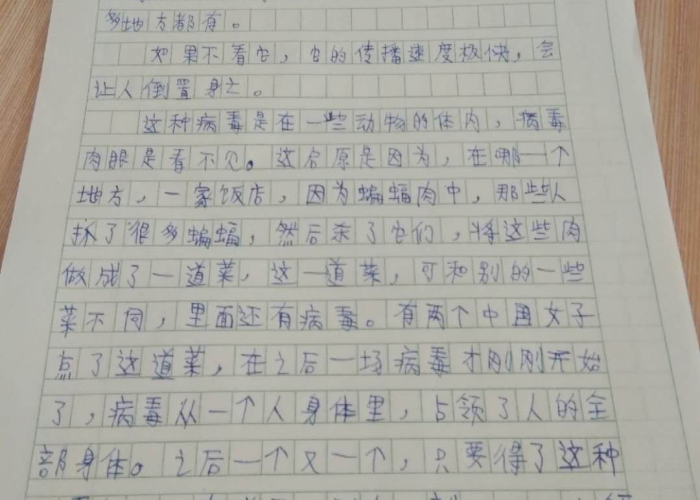 多地方都有。
如果不看它，它的传播速度极快，会
让人倒置身亡。
这种病毒是在一些动物的体内，病毒
肉眼是看不见。这名原是因为，在哪一个
地方，一家饭店，因为蝙蝠肉中，那些人
抓了很多蝙蝠，然后杀了它们，将这些肉
做成了一道菜，这一道菜，可和别的一些
菜不同，里面还有病毒。有两个中国女子
点了这道菜，在之后一场病毒才刚刚开始
了，病毒从一个人身体里，占领了人的全
部身体。之后一个又一个，只要得了这种